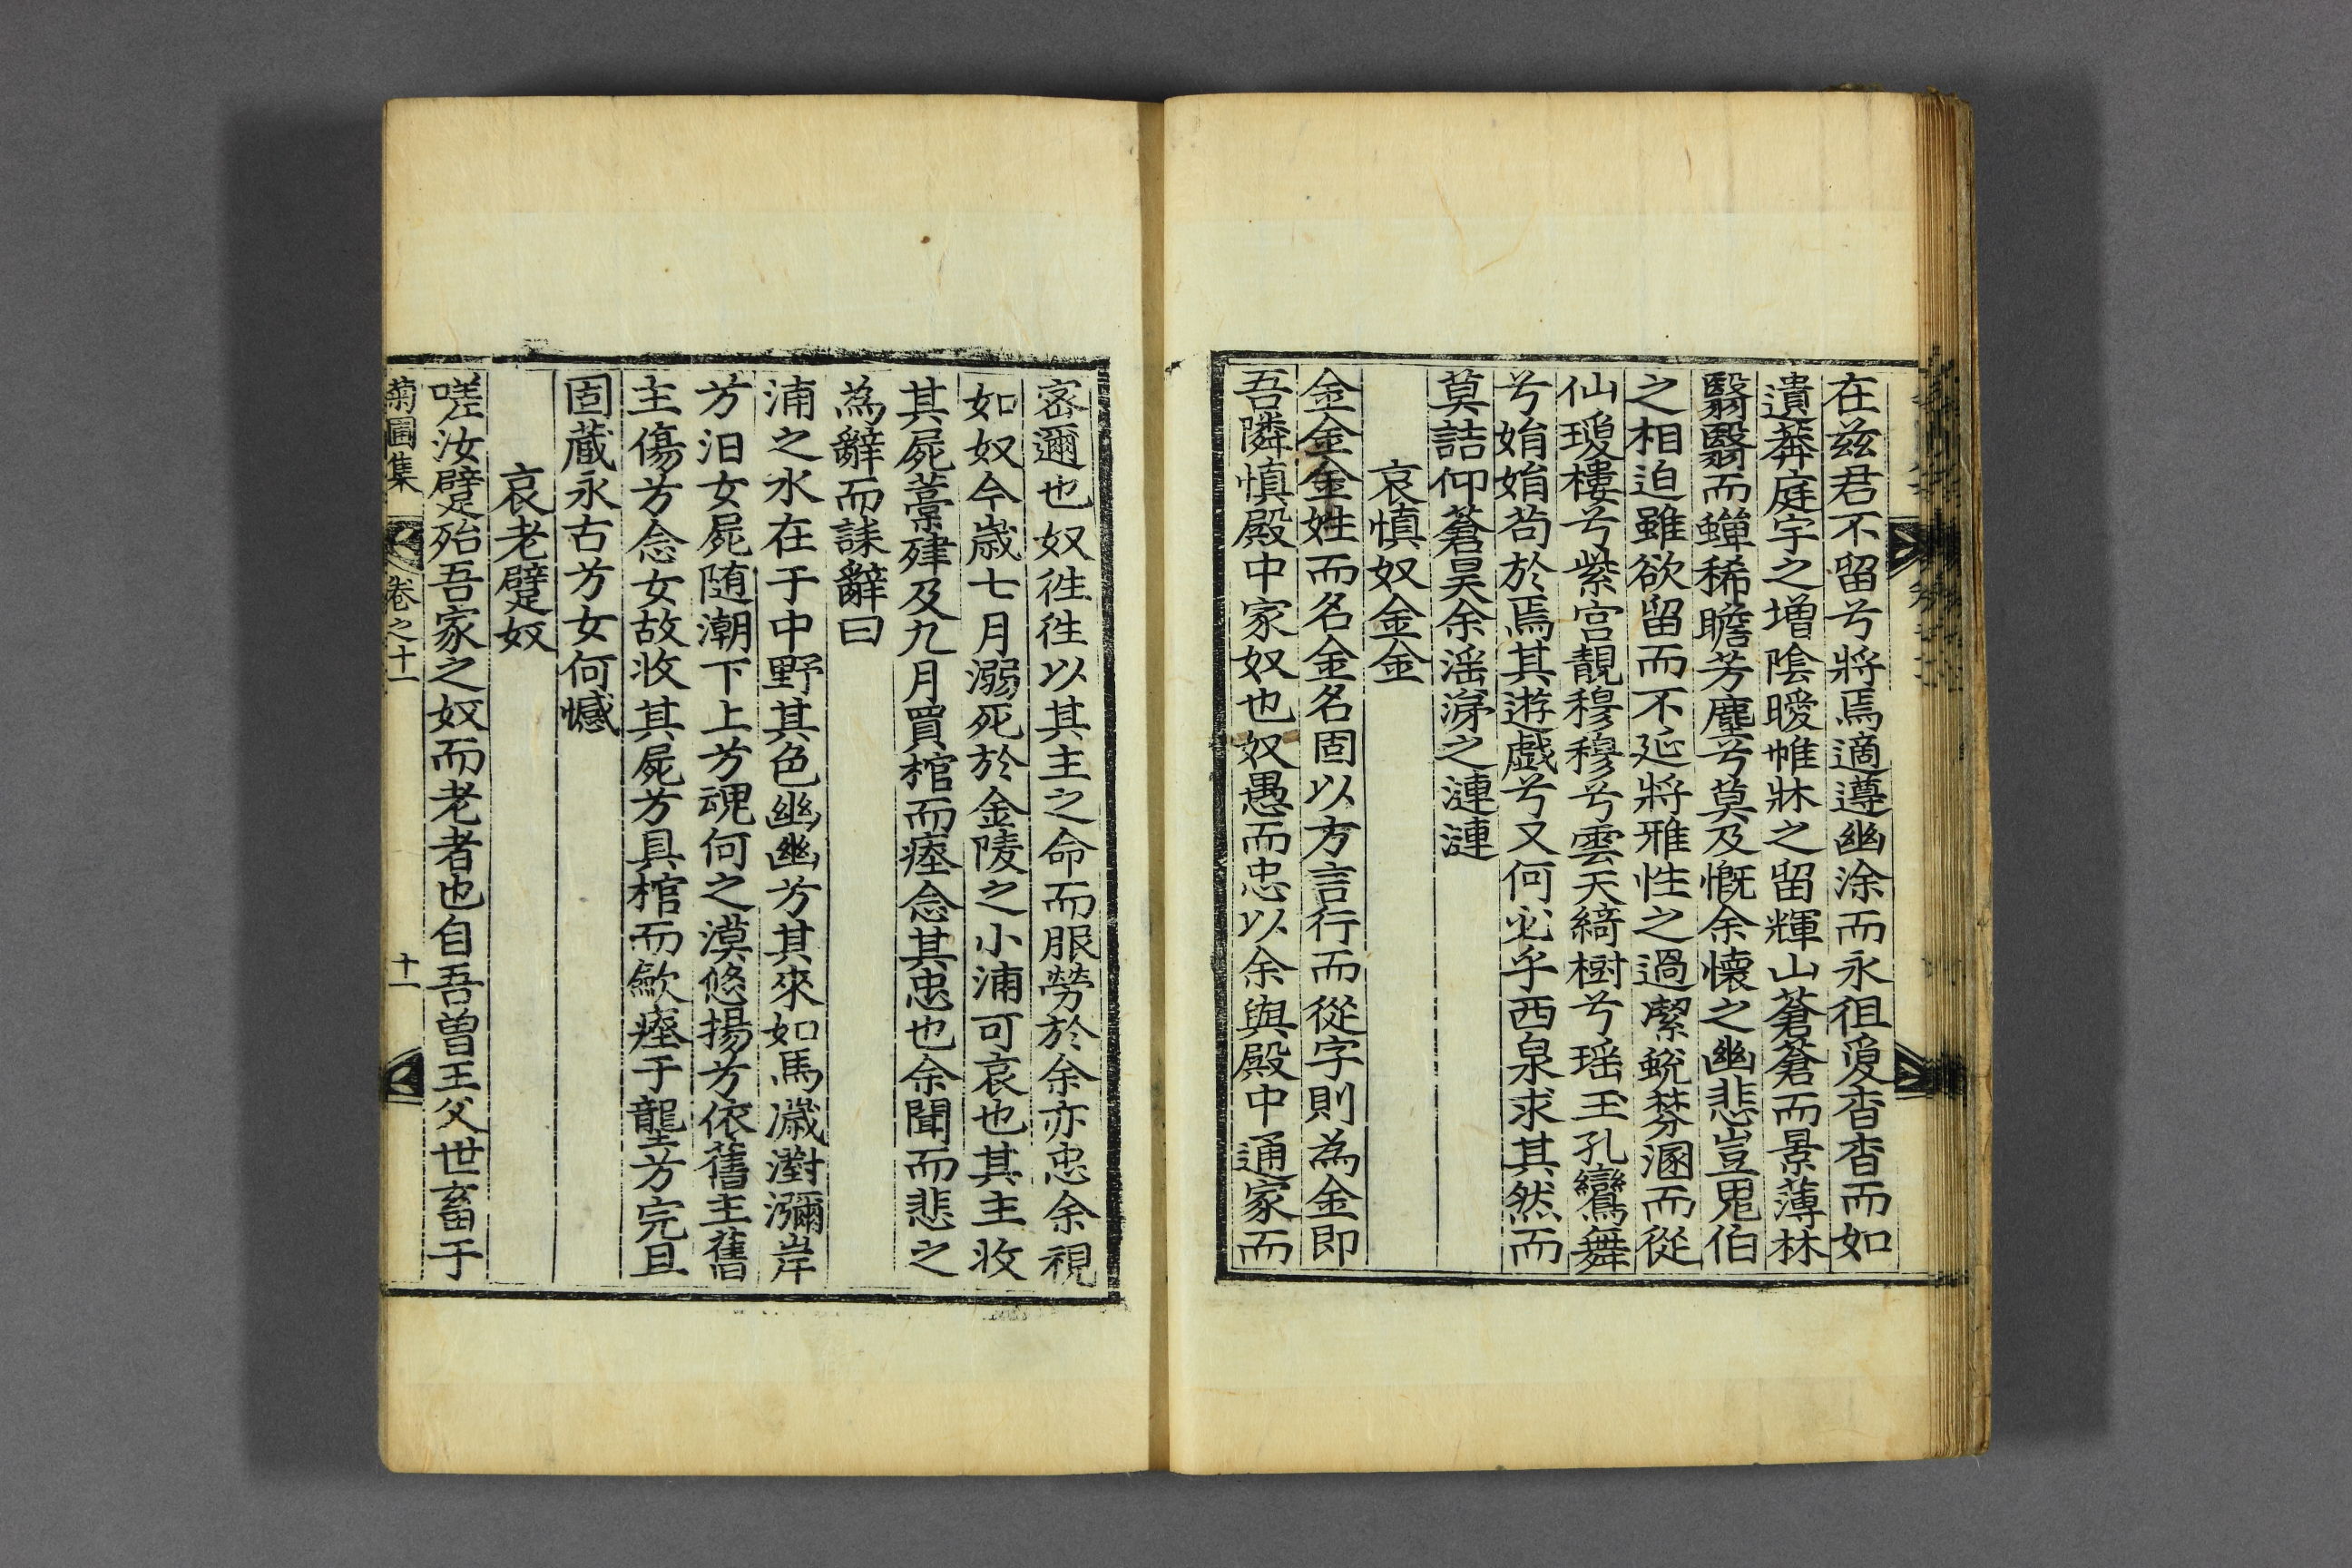 在兹君不留兮將焉適遵幽涂而永徂爰杳杳而如
遺莾庭宇之增陰曖帷牀之留輝山蒼蒼而景薄林
翳翳而蟬稀瞻芳塵兮莫及慨余懷之幽悲豈鬼伯
之相迫雖欲留而不延將雅性之過潔蛻棼溷而從
仙瓊樓兮紫宮靚穆穆兮雲天綺樹兮瑶玉孔鸞舞
兮娟娟苟於焉其遊戯兮又何必乎西泉求其然而
莫詰仰蒼昊余滛涕之漣漣
哀慎奴金金
金金金姓而名金名固以方言行而從字則為金即
吾隣慎殿中家奴也奴愚而忠以余與殿中通家而
宻邇也奴徃徃以其主之命而服勞於余亦忠余視
如奴今歲七月溺死於金陵之小浦可哀也其主收
其屍藁肂及九月買棺而瘞念其忠也余聞而悲之
為辭而誄辭曰
浦之水在于中野其色幽幽兮其來如馬濊濊瀰岸
兮汩女屍随潮下上兮魂何之漠悠揚兮依舊主舊
主傷兮念女故收其屍兮具棺而斂瘞于壟兮完且
固藏永古兮女何憾
哀老躄奴
嗟汝躄殆吾家之奴而老者也自吾曽王父世畜于
菊圃集 卷之十一 十一